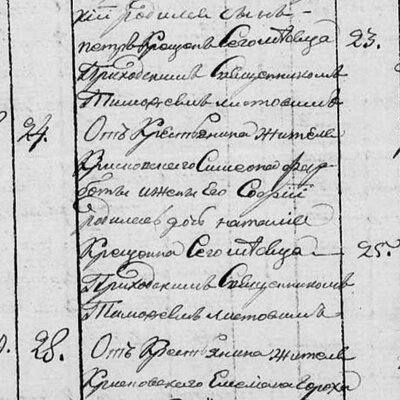 хїй родился сынъ
петръ крещенъ Сего мѣсяца 23.
Приходскимъ Священникомъ
Тимофеемъ листовымъ
24. Отъ Крестьянина жителя
Симеона
и жены Его Софїи
родилась дочь наталїя
Крещенна Сего мѣсяца 25.
Приходскимъ Священникомъ
Тимофеемъ листовымъ
28. Отъ Крестьянина жителя
Емелїана гороха